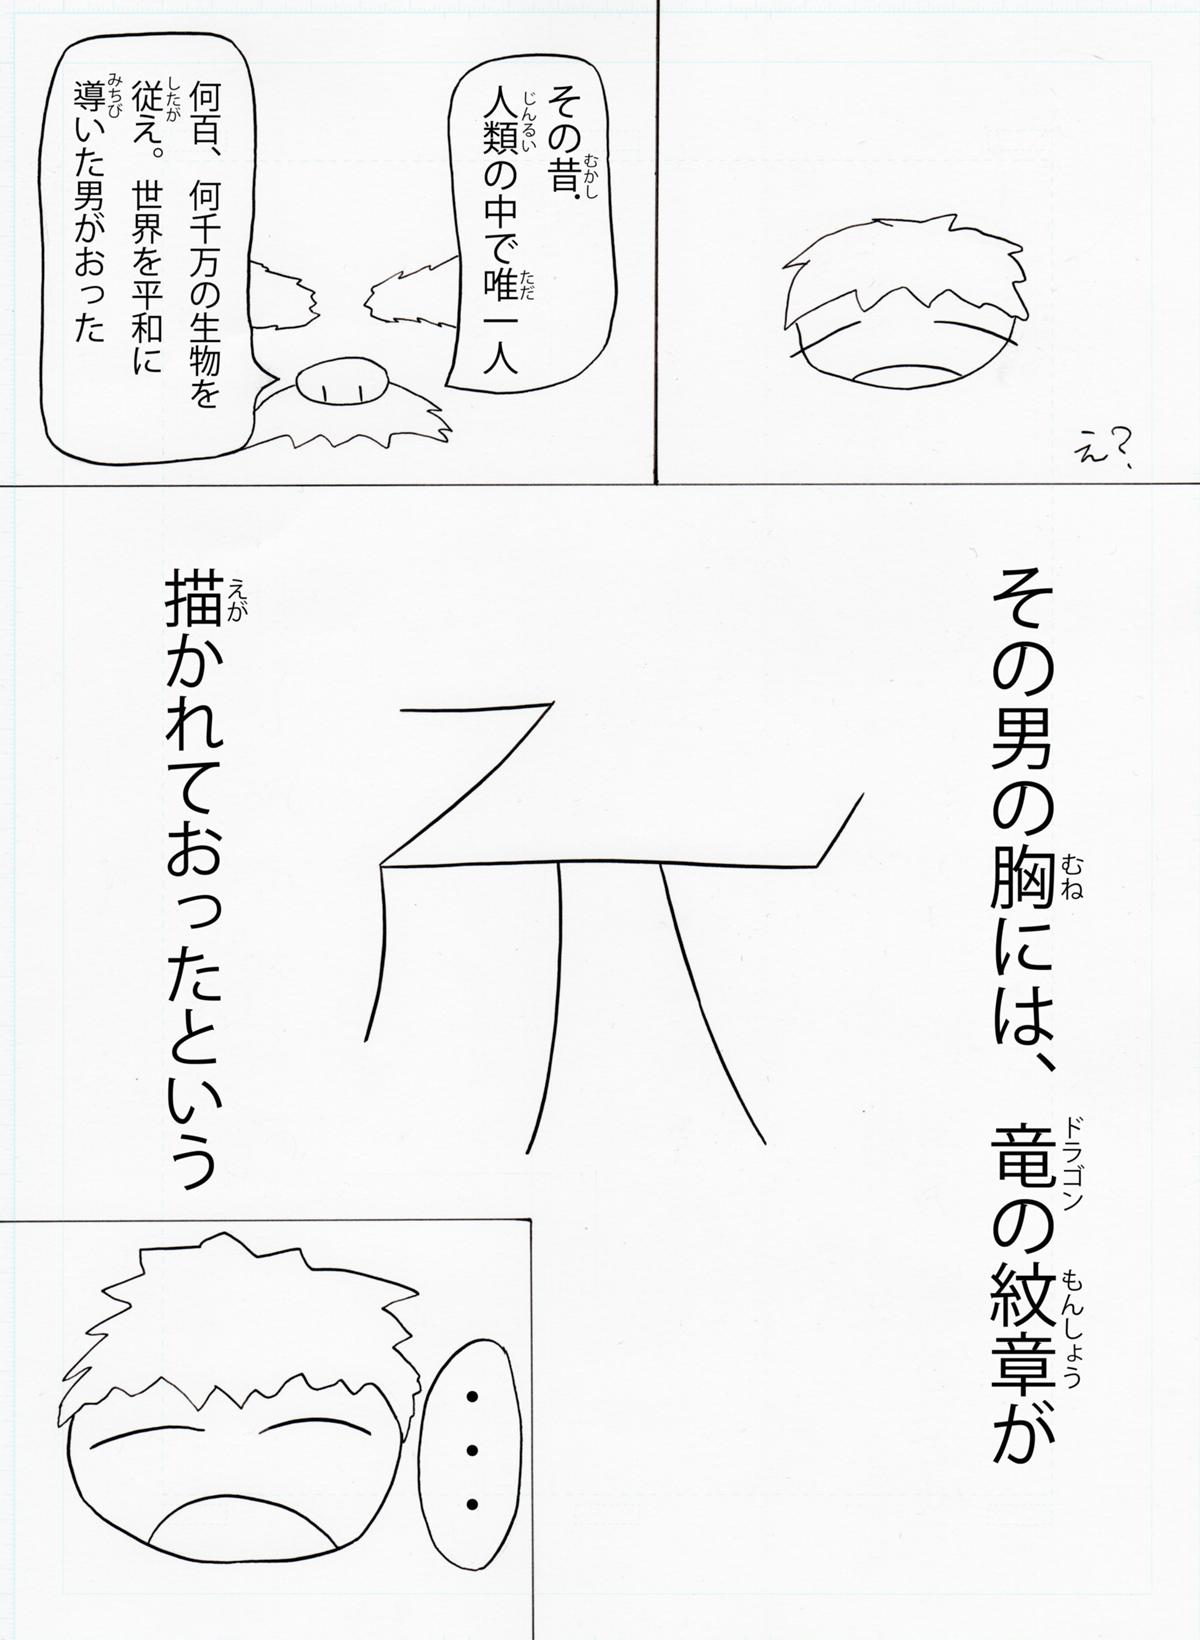 え？
その昔.
人類の中で唯一人
何百、何千万の生物を
従え。世界を平和に
導いた男がおった
その男の胸には、竜の紋章が
描かれておったという
・・・